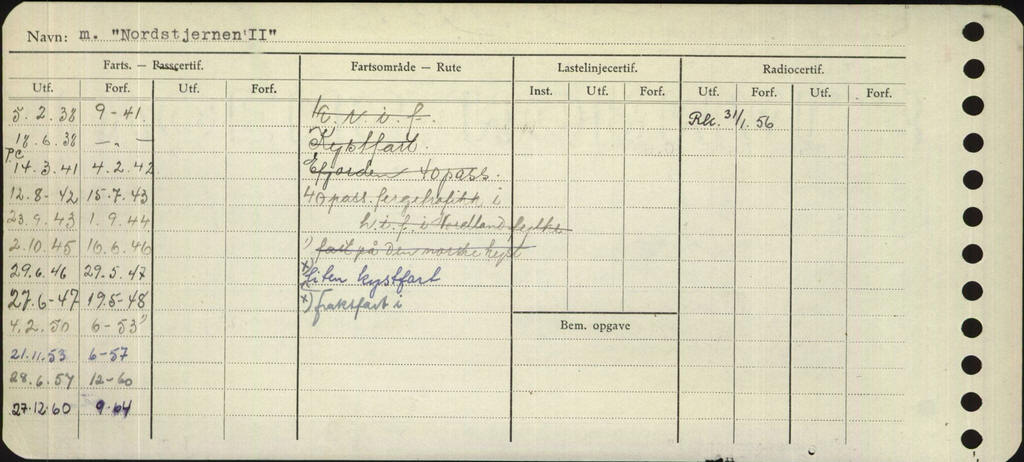 Navn: m. "Nordstjernen II"
Farts. — Passcertif. Fartsområde — Rute Lastelinjecertif. Radiocertif.
Utf. Forf. Utf. Forf. Inst. Utf. Forf. Utf. Forf. Utf. Forf.
5.2.38 9-41. h.t.i.f. Rk. 31/1.56
18.6.38 —"— Kystfart.
P.C 14.3.41 4.2.42 Efjorden 40 pass.
12.8-42 15.7.43 40 pass. fergetrafikk i
23.9.43 1.9.44 h.t.f. i Nordland fylke
2.10.45 16.6.46 1) fart på den norske kyst
29.6.46 29.5.47 x) Liten kystfart
27.6-47 19.5-48 x) fraktfart i
4.2.50 6-53 1)
21.11.53 6-57
28.6.57 12-60
27.12.60 9.64
Bem. opgave